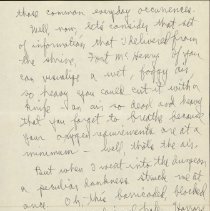 those common everyday occurences.
Well, now, let's consider that set
of information that I delivered from
the shrine, Fort McHenry. If you
can visualize a wet foggy air
so heavy you could cut it with a
knife – an air so dead and heavy
that you forget to breathe because
your oxygen requirements are at a
minimum – well that's the air.
But when I went into the dungeon
a peculiar dankness struck me at
once. Oh this barricaded, blocked